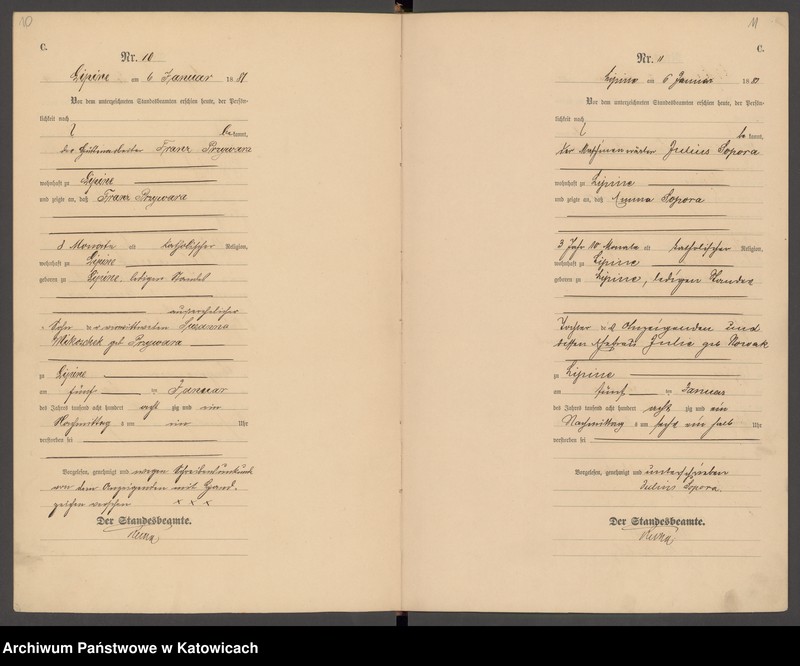 10
C.
Nr. 10
Lipine am 6 Januar 1881
Vor dem unterzeichneten Standesbeamten erschien heute, der Persön-
lichkeit nach
kannt,
der Hüttenarbeiter Franz Prziwara
wohnhaft zu Lipine
und zeigte an, daß Franz Prziwara
8 Monate alt katholischer Religion,
wohnhaft zu Lipine
geboren zu Lipine, ledigen Standes
außerehelicher
Sohn der verwittweten Susanna
geb Prziwara
zu Lipine
am fünf ten Januar
des Jahres tausend acht hundert acht zig und ein
Nachmittag s um vier Uhr
verstorben sei
Vorgelesen, genehmigt und wegen Schreibensunkunde
von dem Anzeigenden mit Hand-
zeichen versehen x x x
Der Standesbeamte.
11
C.
Nr. 11
Lipine am 6 Januar 1881
Vor dem unterzeichneten Standesbeamten erschien heute, der Persön-
lichkeit nach
be kannt,
der Maschinenwärter Julius Sopora
wohnhaft zu Lipine
und zeigte an, daß Emma Sopora
3 Jahr 10 Monate alt katholischer Religion,
wohnhaft zu Lipine
geboren zu Lipine, ledigen Standes
Tochter des Anzeigenden und
dessen Ehefrau Julie geb Nowak
zu Lipine
am fünf ten Januar
des Jahres tausend acht hundert acht zig und ein
Nachmittag s um sechs ein halb Uhr
verstorben sei
Vorgelesen, genehmigt und unterschrieben
Julius Sopora.
Der Standesbeamte.
Archiwum Państwowe w Katowicach